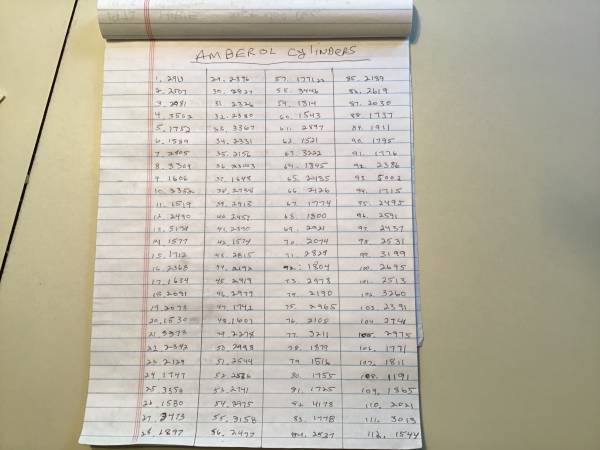 AMBEROL CYLINDERS
2. 2507 30. 2827 59. 1814 87. 2030
4. 3502 32. 2380 60. 1543 88. 1737
5. 1752 33. 3367 61. 2897 89. 1911
6. 1589 34. 2331 62. 1521 90. 1795
7. 2805 35. 2156 63. 3222 91. 1776
8. 3304 64. 1845 92. 2386
9. 1606 37. 1648 65. 2435 93. 5002
66. 2126 94. 1715
11. 1519 39. 2913 67. 1774 95. 2495
12. 2490 40. 2457 68. 1800 96. 2591
69. 2021 97. 2437
14. 1577 42. 1574 70. 2074 98. 2531
15. 1712 43. 2815 71. 2829 99. 3199
16. 2368 44. 2192 1804 100. 2695
17. 1634 45. 2419 73. 2978 101. 2513
18. 2091 46. 2977 74. 2190 102. 3260
19. 2073 47. 1742 75. 2965 103. 2391
20. 1530 48. 1607 76. 2108 104. 2741
21. 3373 49. 2278 77. 3211 105. 2975
22. 2342 50. 2998 78. 1879 106. 1771
23. 2129 51. 2544 79. 1516 107. 1811
24. 1747 80. 1755 108. 1191
25. 3350 53. 2741 81. 1725 109. 1865
26. 1580 54. 2975 82. 4178 110. 2021
27. 3473 55. 3158 83. 1778 111. 3013
28. 1897 56. 2477 84. 2537 112. 1544